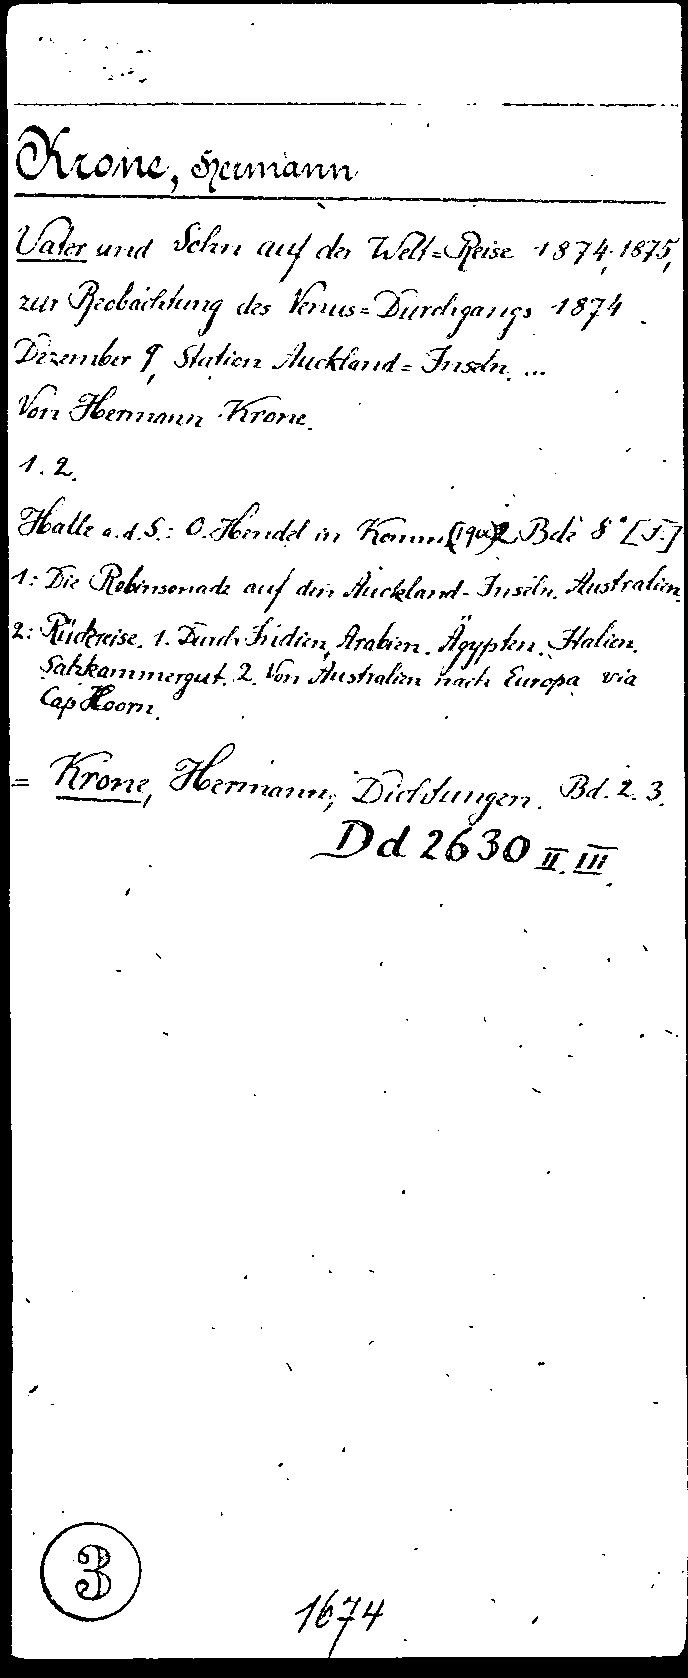 Krone, Hermann
Vater und Sohn auf der Welt=Reise 1874, 1875,
zur Beobachtung des Venus=Durchgangs 1874
Dezember 9, Station Auckland=Inseln. ...
Von Hermann Krone.
1. 2.
Halle a. d. S.: O. Hendel in Komm. 2 Bde 8° [T.]
1: Die Robinsonade auf den Auckland-Inseln. Australien.
2: Rückreise. 1. Durch Indien, Arabien. Ägypten. Italien.
Salzkammergut. 2. Von Australien nach Europa via
Cap Hoorn.
= Krone, Hermann; Dichtungen. Bd. 2. 3.
Dd 2630 II. III.
3
1674